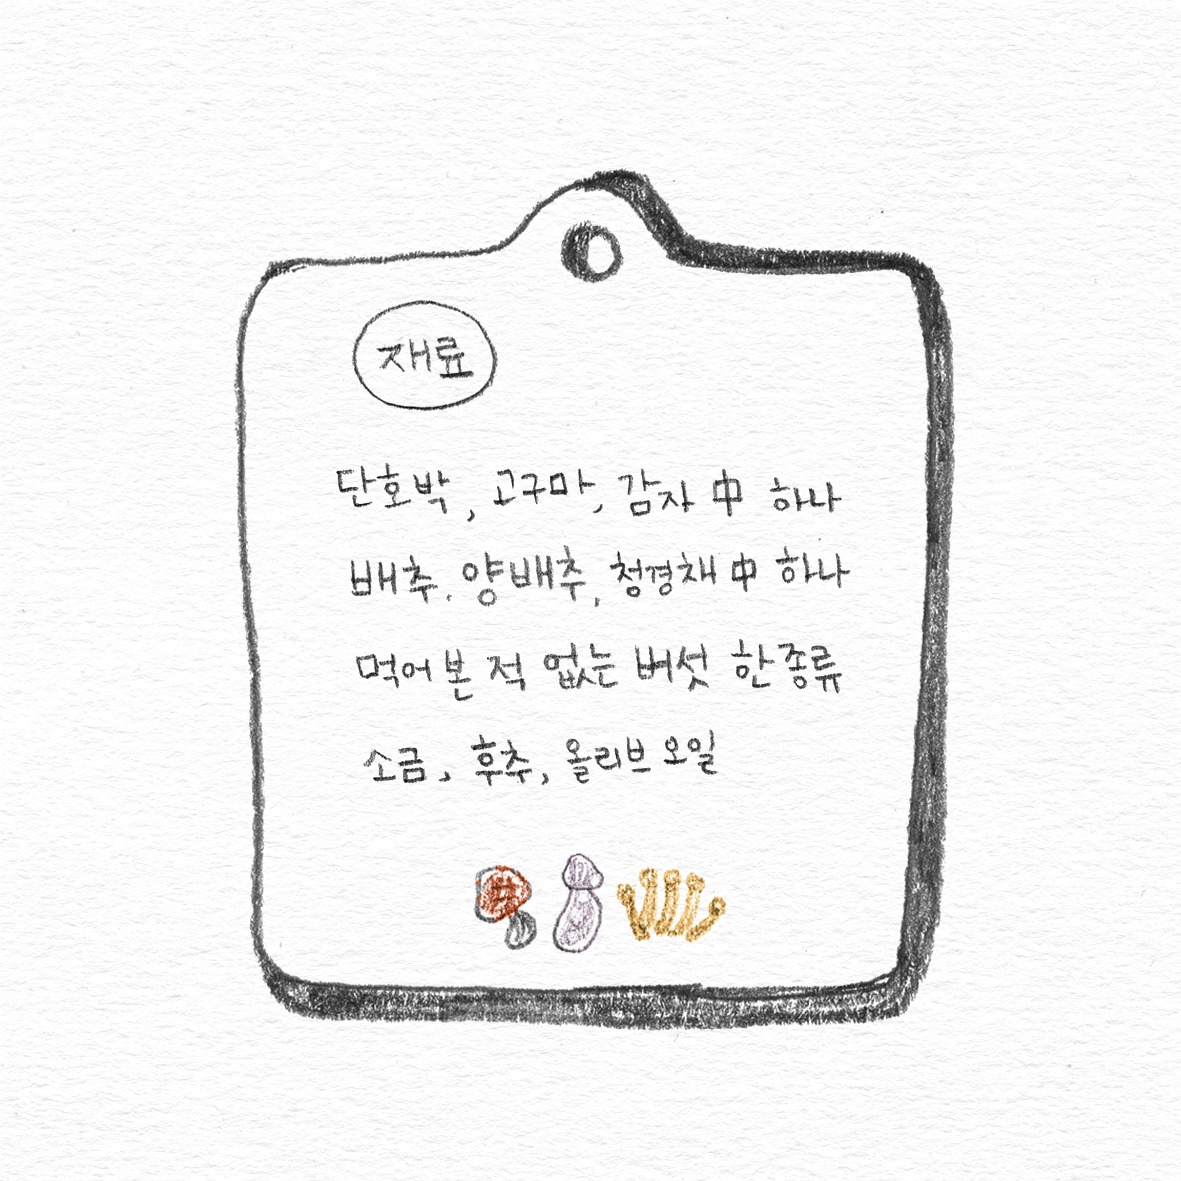 재료
단호박, 고구마, 감자 中 하나
배추, 양배추, 청경채 中 하나
먹어 본 적 없는 버섯 한 종류
소금, 후추, 올리브 오일